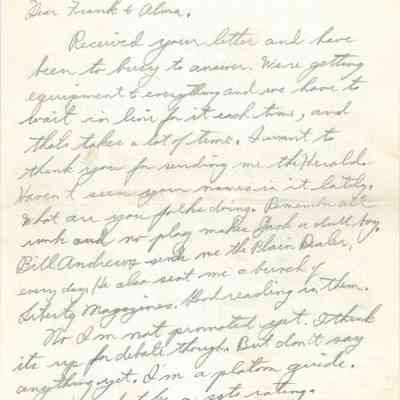 Dear Frank & Alma.
Received your letter and have
been to busy to answer. We're getting
equipment & everything and we have to
wait in line for it each time, and
thats takes a lot of time. I want to
thank you for sending me the Herald.
Haven't seen your names in it lately.
What are you folks doing. Remember all
work and no play makes Jack a dull boy.
Bill Andrews sends me the Plain Dealer,
every day. He also sent me a bunch of
Liberty Magazines. Good reading in them.
No I'm not promoted yet. I think
its up for debate though. But don't say
anything yet. I'm a platon guide.
a sgts rating.